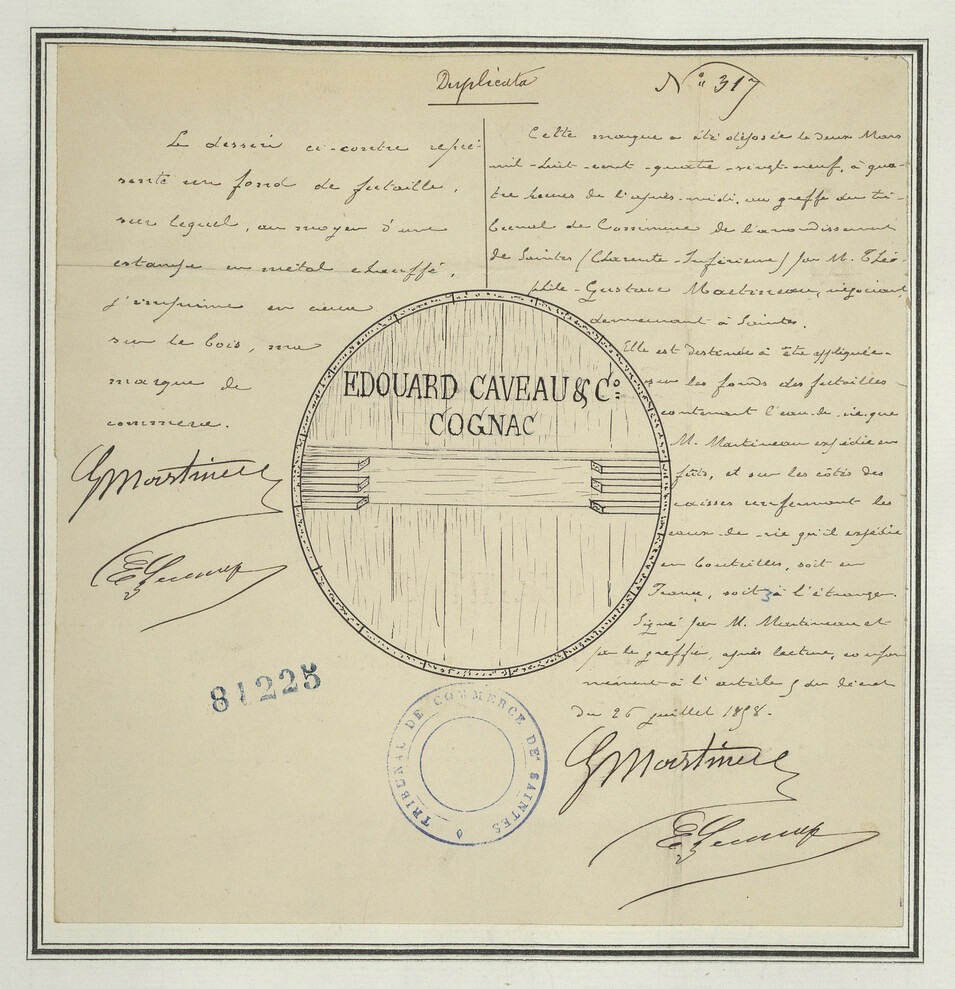 Duplicata
N° 317
Le dessin ci-contre repré-
sente un fond de futaille,
sur lequel, au moyen d'une
estampe en métal chauffé,
j'imprime en creux
sur le bois, ma
marque de
commerce.
G Martineau
Cette marque a été déposée le deux Mars
mil-huit-cent-quatre-vingt-neuf, à qua-
tre heures de l'après-midi, au greffe du tri-
bunal de Commerce de l'arrondissement
de Saintes (Charente-Inférieure) par M. Théo-
phile-Gustave Martineau, négociant
demeurant à Saintes.
Elle est destinée à être appliquée
sur les fonds des futailles
contenant l'eau-de-vie que
M. Martineau expédie en
fûts, et sur les côtés des
caisses renfermant les
eaux-de-vie qu'il expédie
en bouteilles, soit en
France, soit à l'étranger.
Signé par M. Martineau et
par le greffier, après lecture, confor
mément à l'article 5 du décret
du 26 juillet 1858.
G Martineau
EDOUARD CAVEAU & Co:
COGNAC
81225
TRIBUNAL DE COMMERCE DE SAINTES